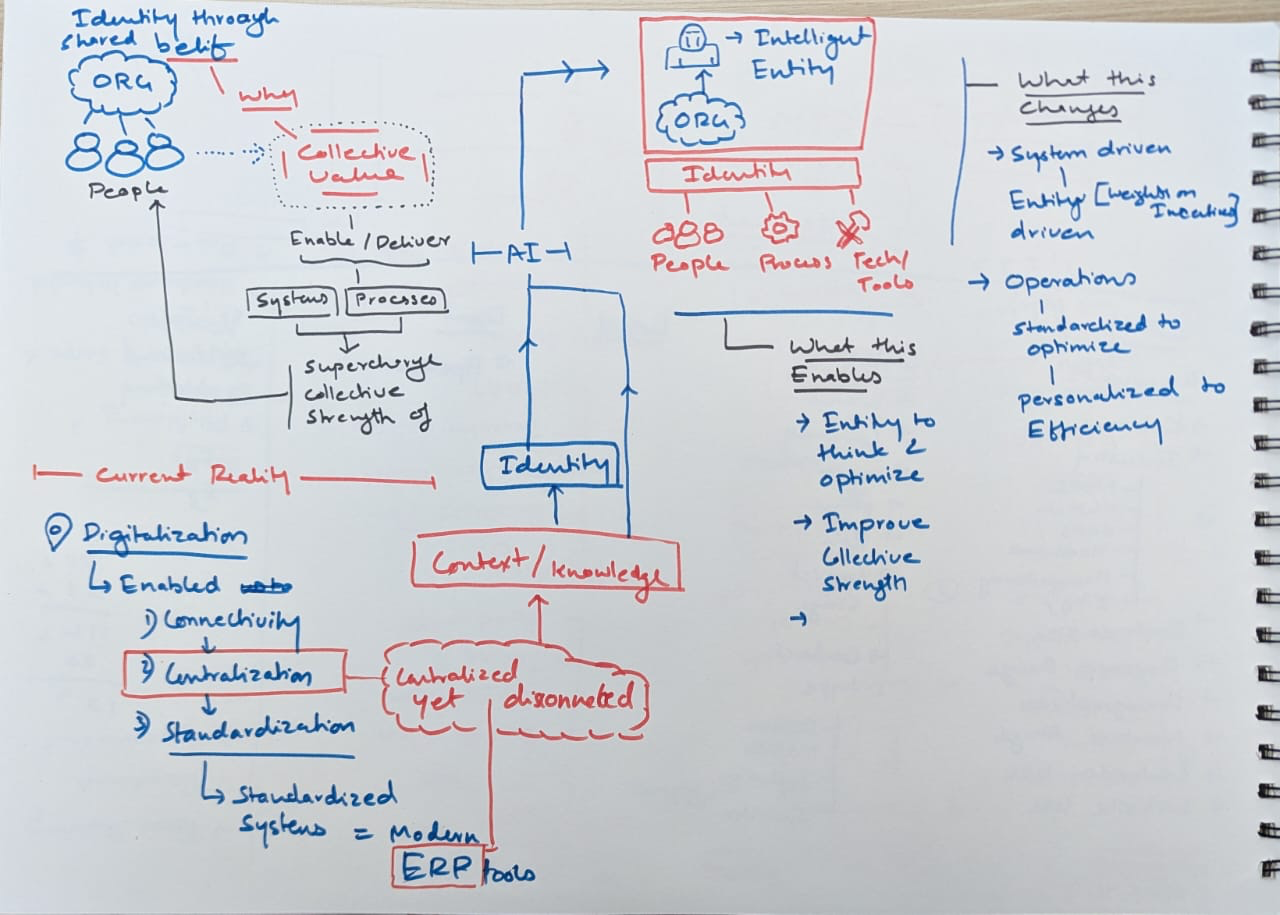 Identity through
shared belief
ORG
People
Why
Collective
value
Enable / Deliver
Systems
Processes
Supercharge
collective
strength of
Current Reality
Digitalization
Enabled
1) Connectivity
2) Centralization
3) Standardization
Standardized
Systems = Modern
ERP tools
Centralized
yet disconnected
Context / knowledge
Identity
AI
Intelligent
Entity
ORG
Identity
People
Process
Tech/
Tools
What this
Enables
Entity to
think &
optimize
Improve
Collective
strength
What this
Changes
System driven
Entity
driven
Operations
standardized to
optimize
personalized to
Efficiency